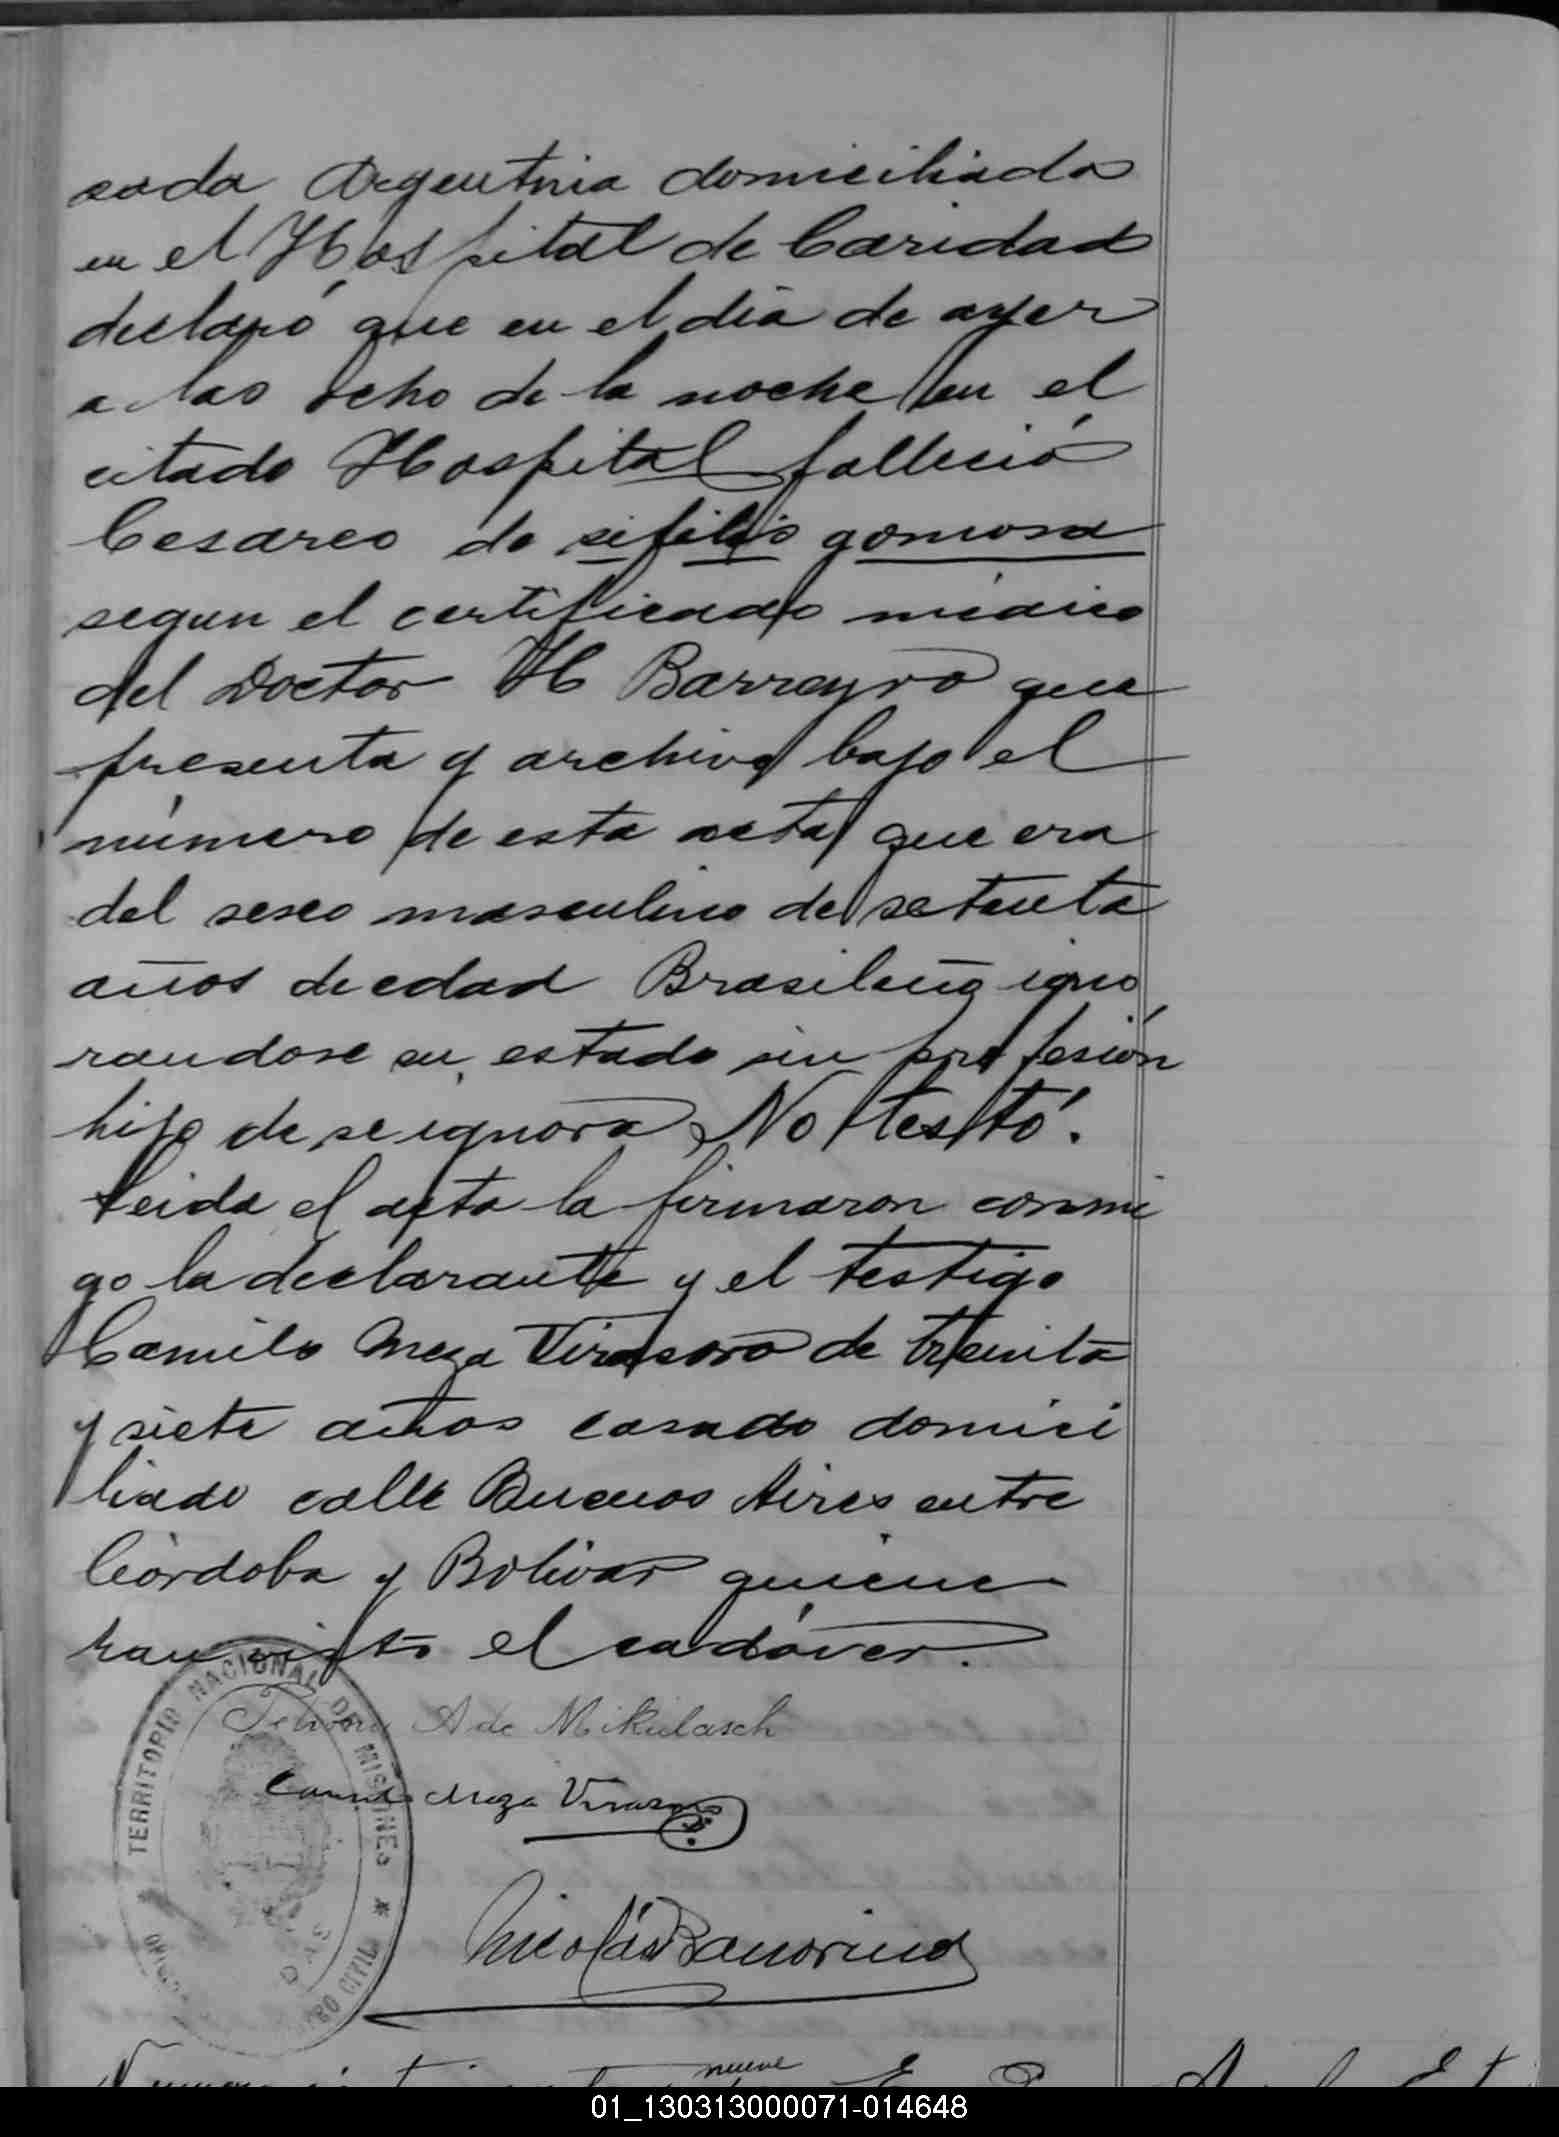 sada Argentina domiciliada
en el Hospital de Caridad
declaró que en el dia de ayer
a las ocho de la noche en el
citado Hospital falleció
Cesareo de sifilis gomosa
segun el certificado médico
del Doctor H Barreyro que
presenta y archivo bajo el
número de esta acta que era
del sexo masculino de setenta
años de edad Brasileño igno
randose su estado sin profesión
hijo de se ignora No testó.
Leida el acta la firmaron conmi
go la declarante y el testigo
Camilo Meza Virasoro de treinta
y siete años casado domici
liado calle Buenos Aires entre
Córdoba y Bolivar quiene
han visto el cadáver.
A de Mikulasch
Camilo Meza Virasoro
Nicolás
TERRITORIO NACIONAL DE MISIONES * REGISTRO CIVIL *
nueve
01_130313000071-014648